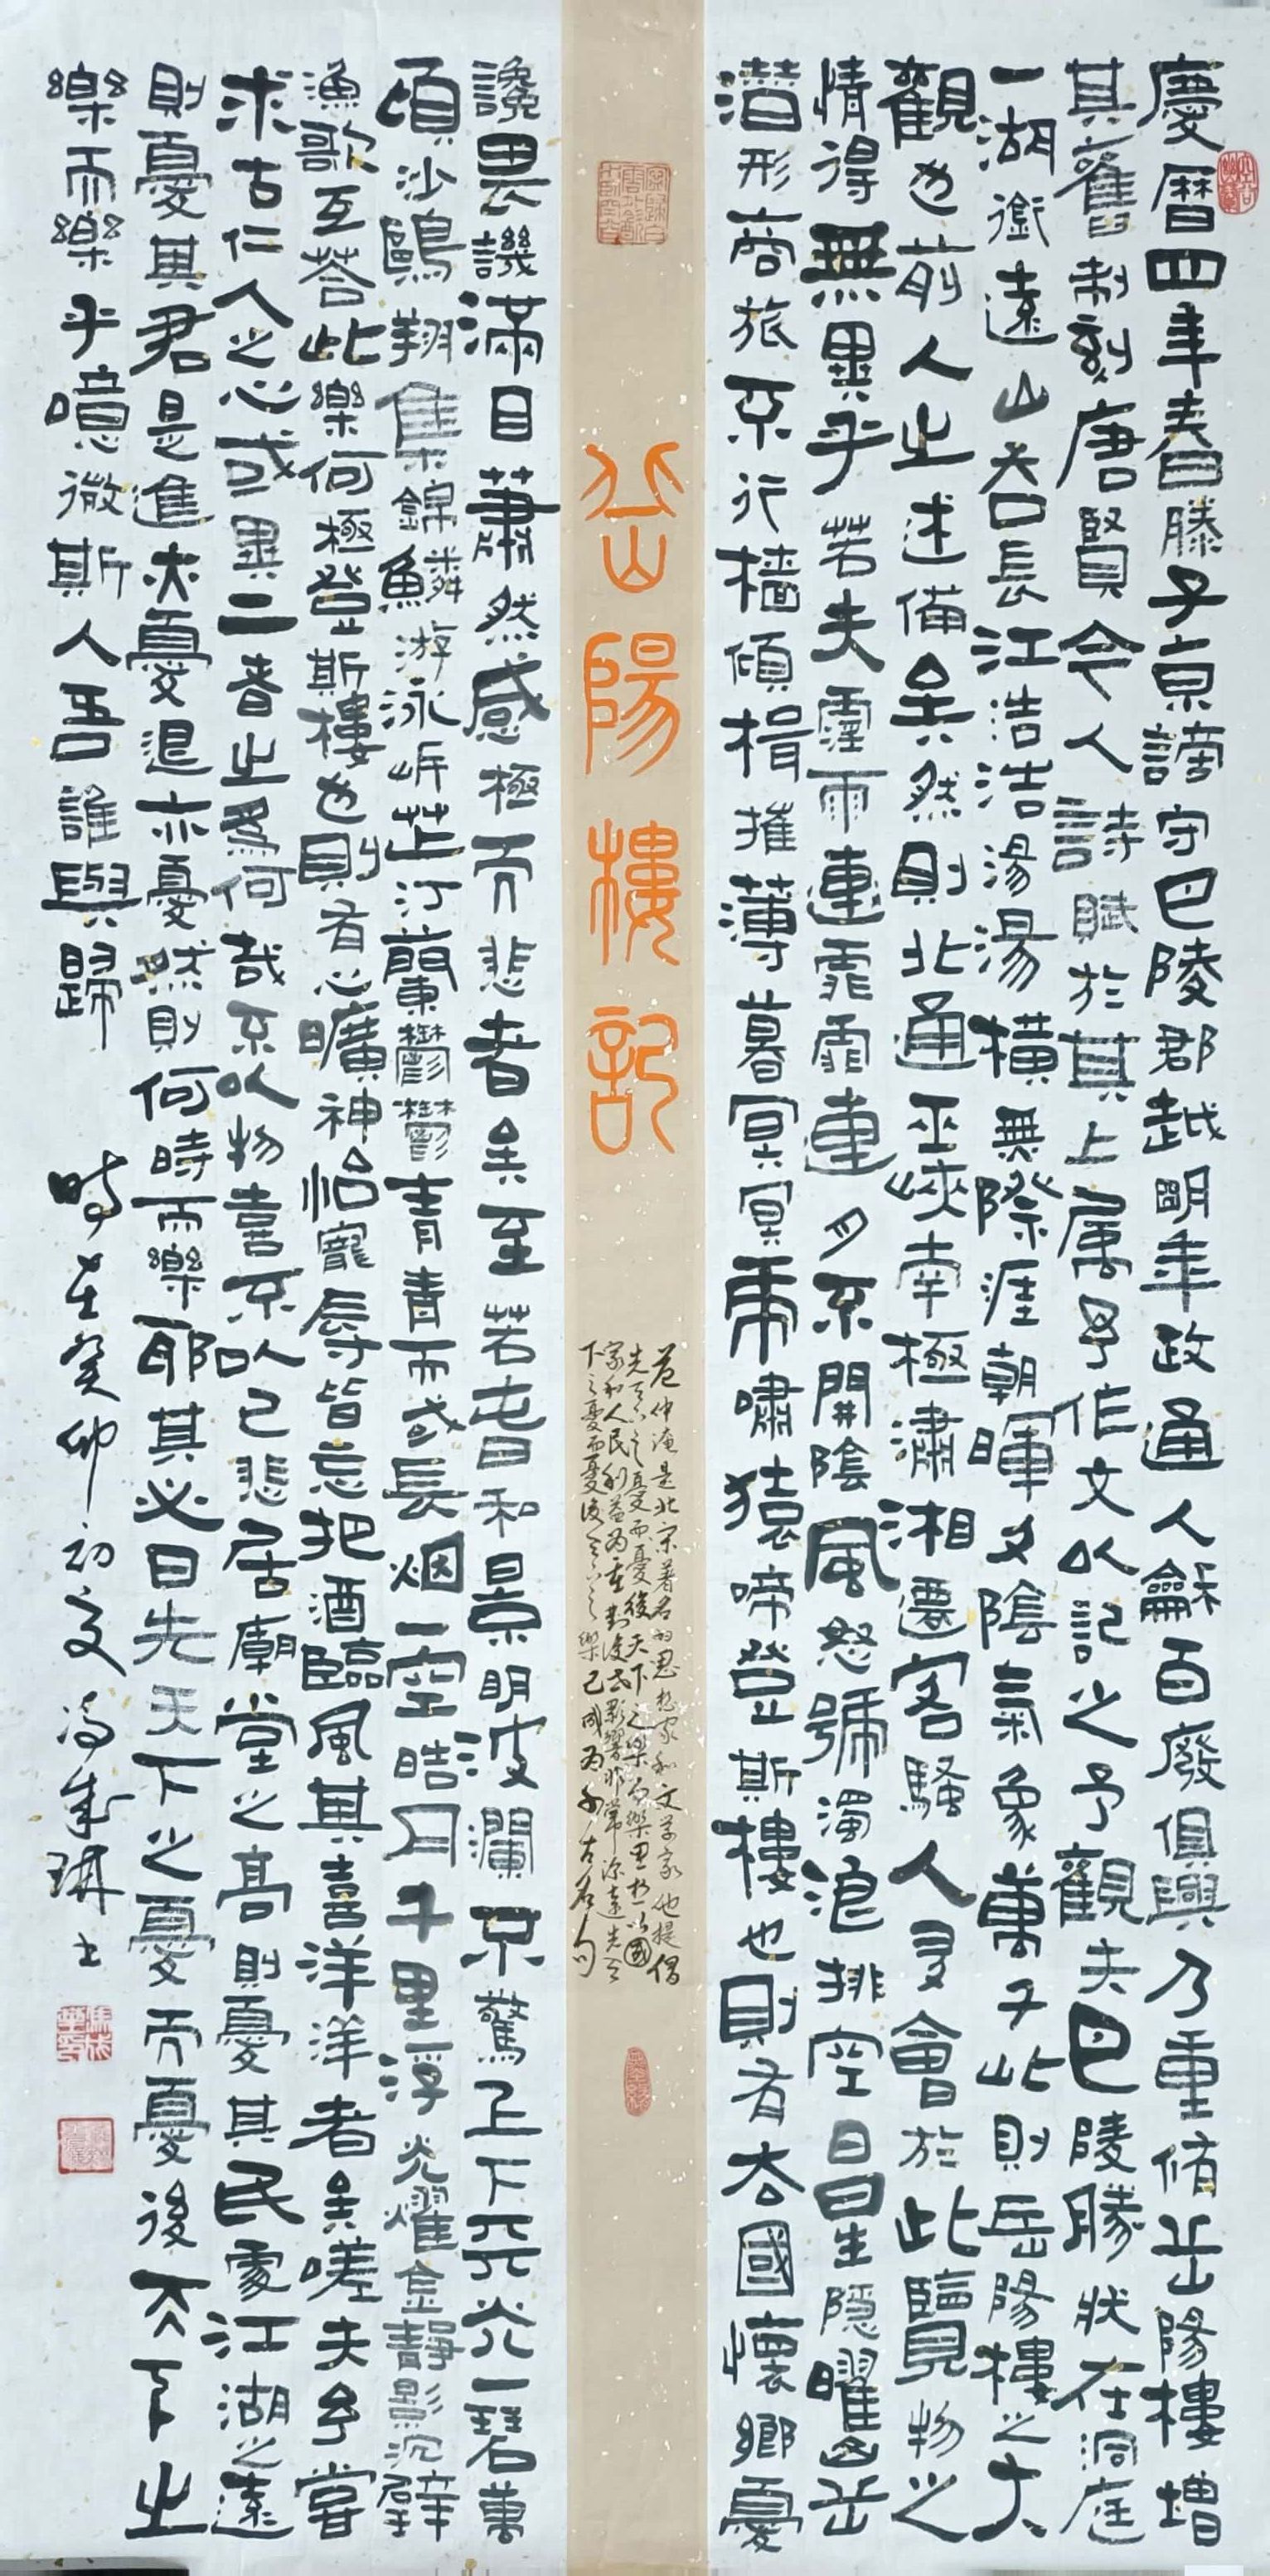 慶曆四年春滕子京謫守巴陵郡越明年政通人龢百廢俱興乃重脩岳陽樓增
其舊制刻唐賢今人詩賦於其上属予作文以記之予觀夫巴陵勝狀在洞庭
一湖銜遠山吞長江浩浩湯湯橫無際涯朝暉夕陰氣象萬千此則岳陽樓之大
觀也前人之述備矣然則北通巫峽南極瀟湘遷客騷人多會於此覽物之
情得無異乎若夫霪雨連霏霏連月不開陰風怒號濁浪排空日星隱曜山岳
潛形商旅不行檣傾楫摧薄暮冥冥虎嘯猿啼登斯樓也則有去國懷鄉憂
岳陽樓記
范仲淹是北宋著名的思想家和文学家他提倡
先天下之憂而憂後天下之樂而樂思想以國
家和人民利益为重對後世影響非常深遠先天
下之憂而憂後天下之樂已成为千古名句
讒畏譏滿目蕭然感極而悲者矣至若春和景明波瀾不驚上下天光一碧萬
頃沙鷗翔集錦鱗游泳岸芷汀蘭鬱鬱青青而或長烟一空皓月千里浮光耀金靜影沉璧
漁歌互荅此樂何極登斯樓也則有心曠神怡寵辱皆忘把酒臨風其喜洋洋者矣嗟夫予嘗
求古仁人之心或異二者之為何哉不以物喜不以己悲居廟堂之高則憂其民處江湖之遠
則憂其君是進亦憂退亦憂然則何時而樂耶其必曰先天下之憂而憂後天下之
樂而樂乎噫微斯人吾誰與歸 時在癸卯初夏馮成琳書